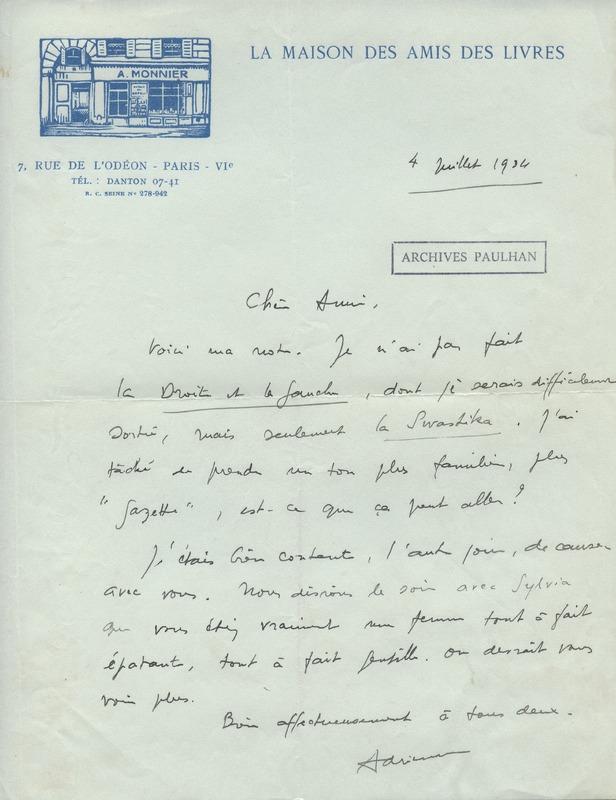 A. MONNIER
LA MAISON DES AMIS DES LIVRES
7, RUE DE L'ODÉON - PARIS - VIe
TÉL. : DANTON 07-41
R. C. SEINE No 278-942
4 juillet 1934
ARCHIVES PAULHAN
Chère Amie,
Voici ma note. Je n'ai pas fait
la Droite et la Gauche, dont je serais difficilement
sortie, mais seulement la Swastika. J'ai
tâché de prendre un ton plus familier, plus
"Gazette", est-ce que ça peut aller?
J'étais bien contente, l'autre jour, de causer
avec vous. Nous disions le soir avec Sylvia
que vous étiez vraiment une femme tout à fait
épatante, tout à fait gentille. On devrait vous
voir plus.
Bien affectueusement à tous deux.
Adrienne